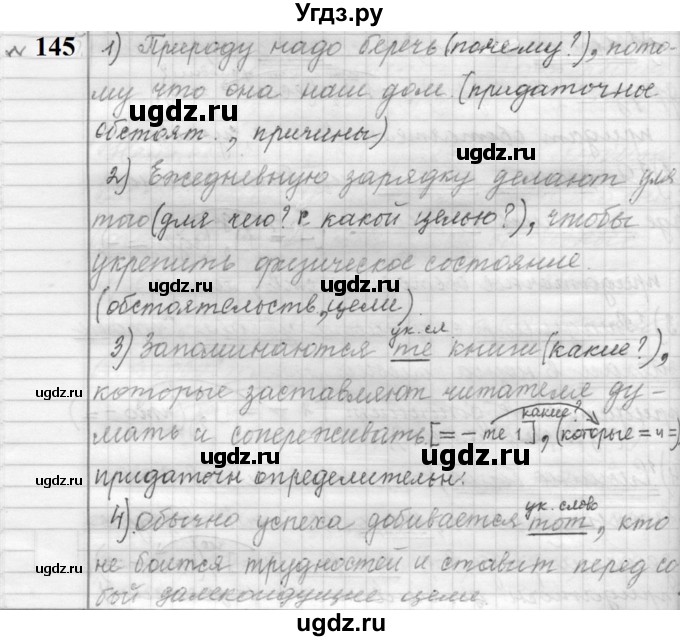 Угдз.ру
№ 145 1) Природу надо беречь (почему?), пото-
му что она наш дом (придаточные
обстоят., причины)
2) Ежедневную зарядку делают для
того (для чего? с какой целью?), чтобы
укрепить физическое состояние.
(обстоятельств, цели)
ук. сл
3) Запоминаются те книги (какие?),
которые заставляют читателя ду-
какие?
мать и сопереживать [= – те 1], (которые = и =)
придаточн определительн.
ук. слово
4) Обычно успеха добивается тот, кто
не боится трудностей и ставит перед со
бой далекоидущие цели.
ugdz.ru
ugdz.ru
ugdz.ru
ugdz.ru
ugdz.ru
ugdz.ru
ugdz.ru
ugdz.ru
ugdz.ru
ugdz.ru
ugdz.ru
ugdz.ru